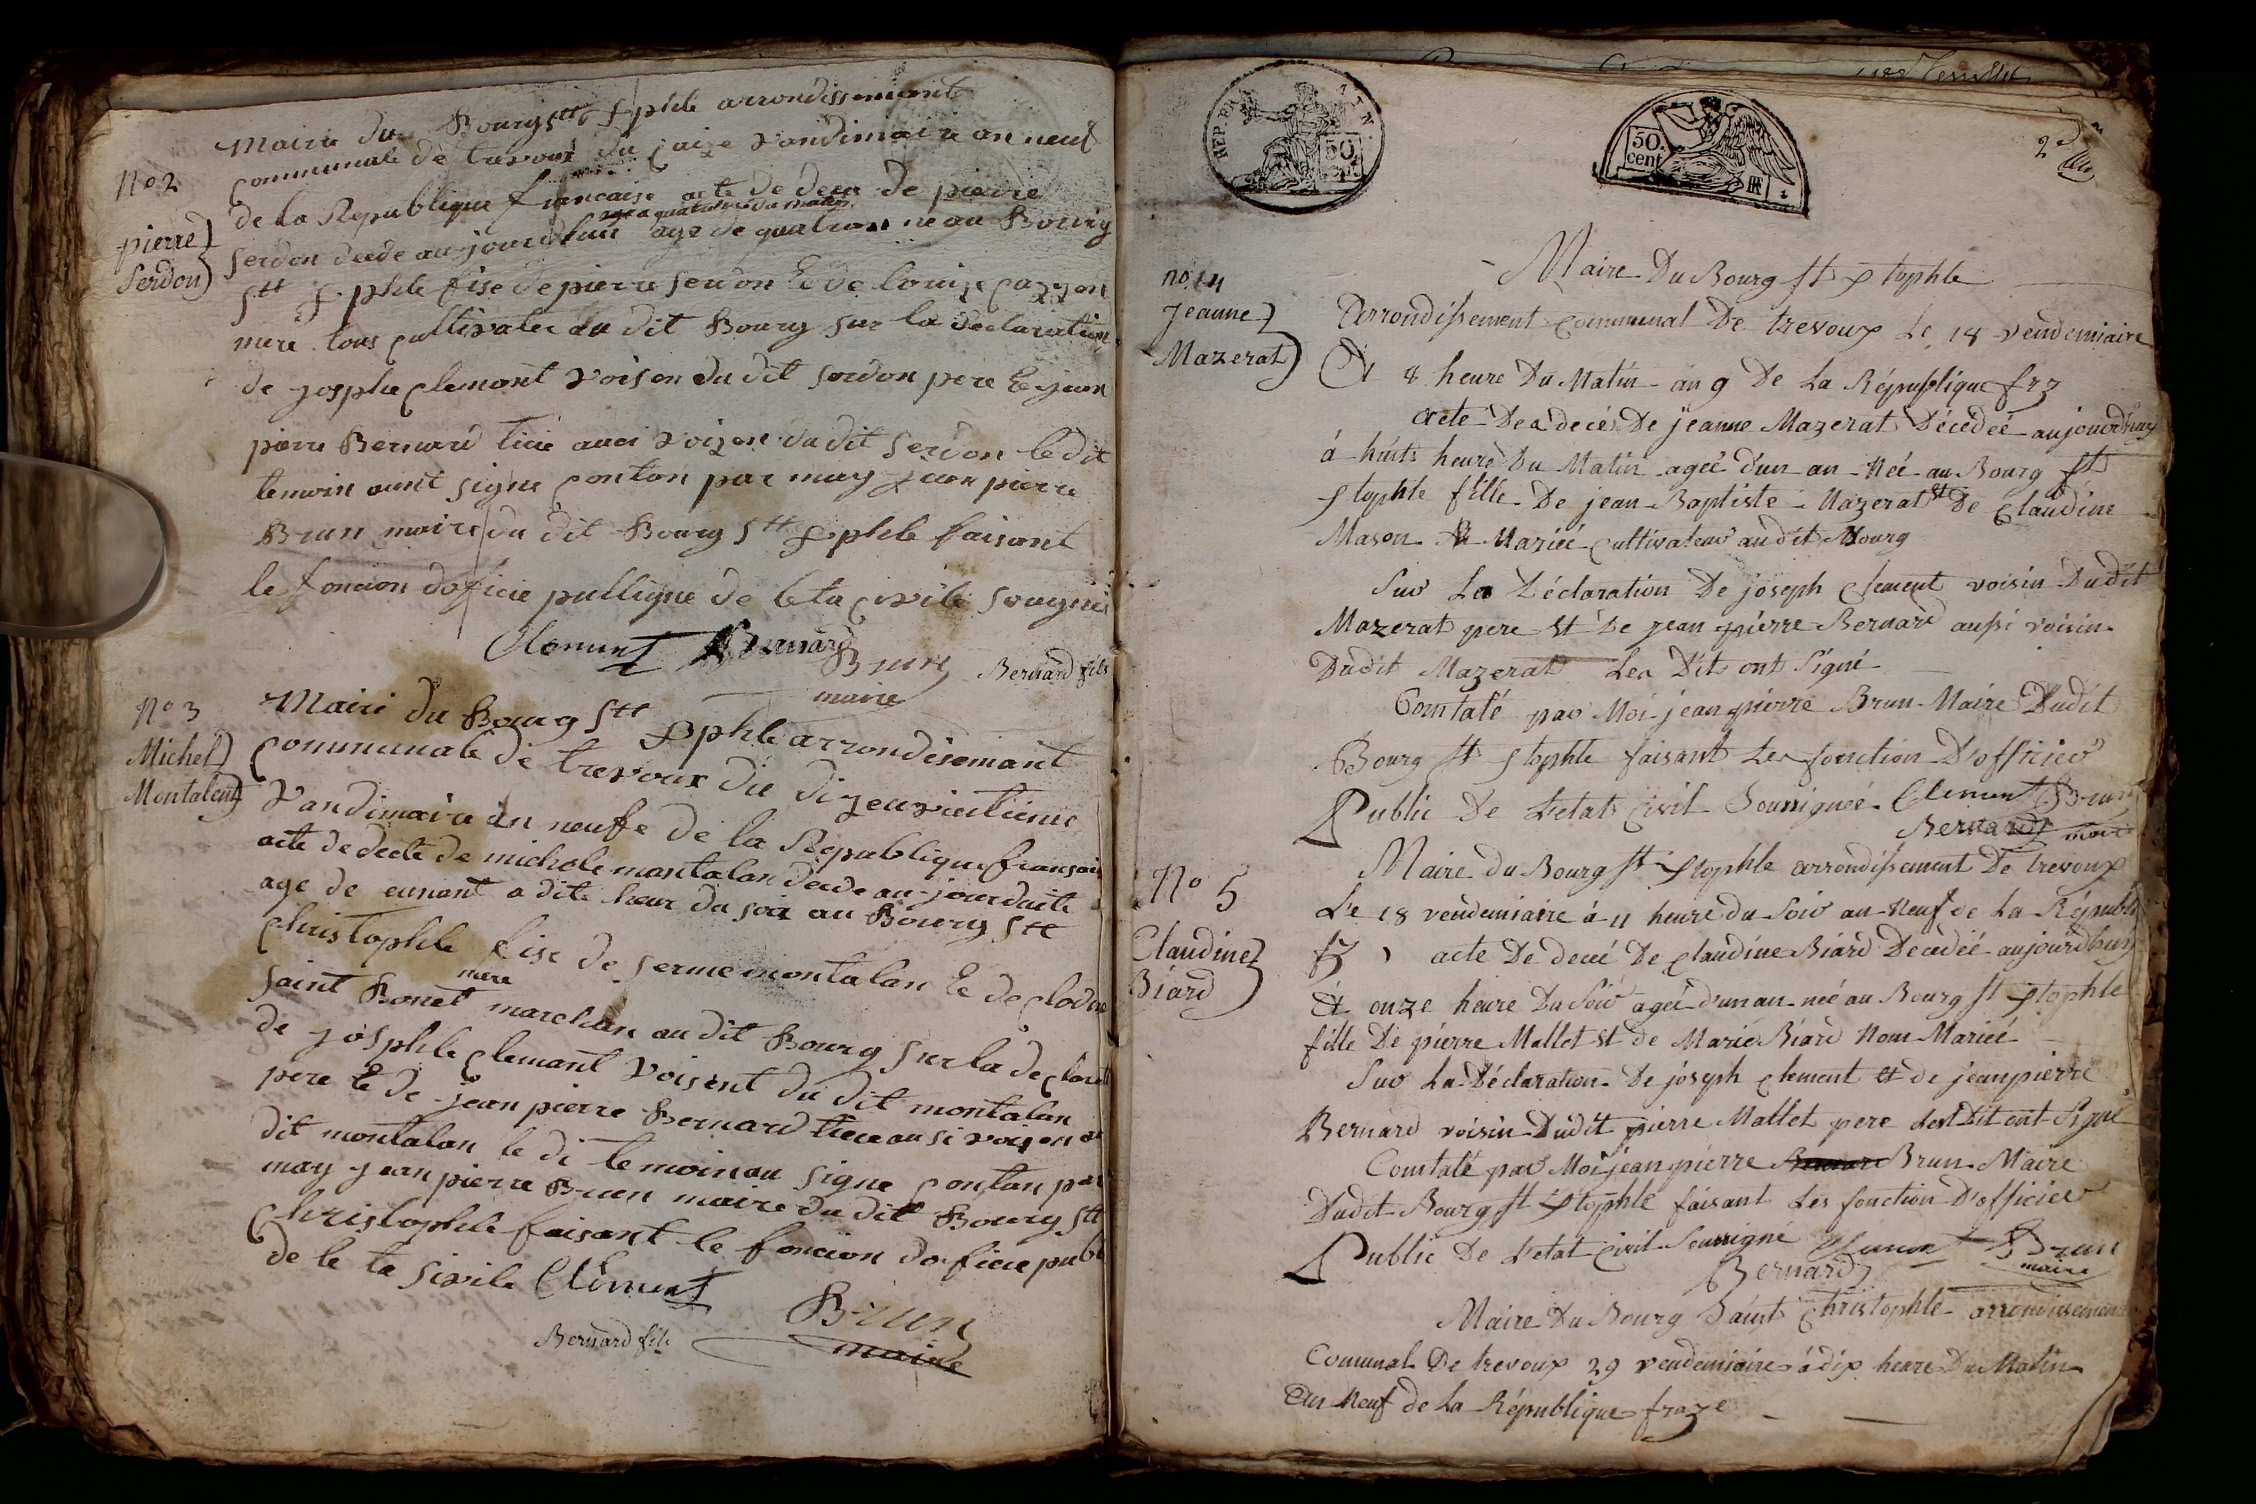 Maire du Bourg Stt Xphle arrondissement
No 2
communale de trevoux du saize vandimaire an neuf
de la Republique francaise acte de deces de pierre
pierre
Serdon
age a quatre heure du matin
serdon decde aujourdhui age de quatre ans ne au Bourg
Stt Xphle fise de pierre serdon Et de louize cazzon
mere tous cultivater du dit Bourg sur la declaration
de josphe clemont voison du dit serdon pere Et jean
pierre Bernard ausi voizon du dit serdon le dit
temoin ount signe conton par moy jean pierre
Brun maire du dit Bourg Stt Xphle faisant
le foncion doficie pullique de leta civile sougnie
Clement Bernard
Brun Bernard fils
maire
No 3
Michel
Montalend
Maire du Bourg Stt Xphle arrondisemant
communale de trevoux du dizeuvieutieme
Vandimaire an neufe de la Republique francai
acte de decte de michele montalan decde aujourduite
age de eunant a dite heur du soir au Bourg Stt
christophle fise de serme montalan Et de clodine
mere
saint Bonet marchan au dit Bourg sur la declarati
de josphle clemant voisent du dit montalan
pere Et de jean pierre Bernard ausi voizon
dit montalan le di temoin ou signe conton par
moy jean pierre Brun maire du dit Bourg Stt
christophle faisant le foncion doficie publ
de le ta sivile Clement
Brun
Bernard fils
maire
2d
REP. FR
50
50.
cent
Maire Du Bourg St Xtophle
no 4
Jeanne
Mazerat
Arrondissement communal De trevoux Le 18 vendemiaire
A 8 heure Du Matin an 9 De La République frz
acte De decés De jeanne Mazerat Décédéé aujourdhuy
á huits heure Du Matin ageé d'un an Néé au Bourg St
Xtophle fille De jean Baptiste Mazerat et De Claudine
Mason Mariéé cultivateur audit Bourg
Sur La Déclaration De joseph Clement voisin Dudit
Mazerat pere et De jean pierre Bernard aussi voisin
Dudit Mazerat Les Dits ont Signé
Constaté par Moi jean pierre Brun Maire Dudit
Bourg St Xtophle faisant Les fonction D'officier
Public De L'etat civil Soussigneé Clement Brun
Bernard maire
Maire du Bourg St Xtophle arrondissement De trevoux
No 5
Claudine
Biard
Le 18 vendemiaire à 11 heure du Soir an Neuf de La Républi
fz acte De decé De Claudine Biard Decedéé aujourdhuy
A onze heure Du Soir ageé d'un an née au Bourg St Xtophle
fille De pierre Mallet et de Marie Biard Nom Mariéé
Sur La Déclaration De joseph clement et de jean pierre
Bernard voisin Dudit pierre Mallet pere Les Dit ont Signé
Constaté par Moi jean pierre Brun Maire
Dudit Bourg St Xtophle faisant Les fonction D'officier
Public De L'etat Civil Soussigné Clement Brun
Bernard maire
Maire Du Bourg Saint Christophle arrondissement
Comunal De trevoux 29 vendemiaire à dix heure Du Matin
An Neuf de La République fraze